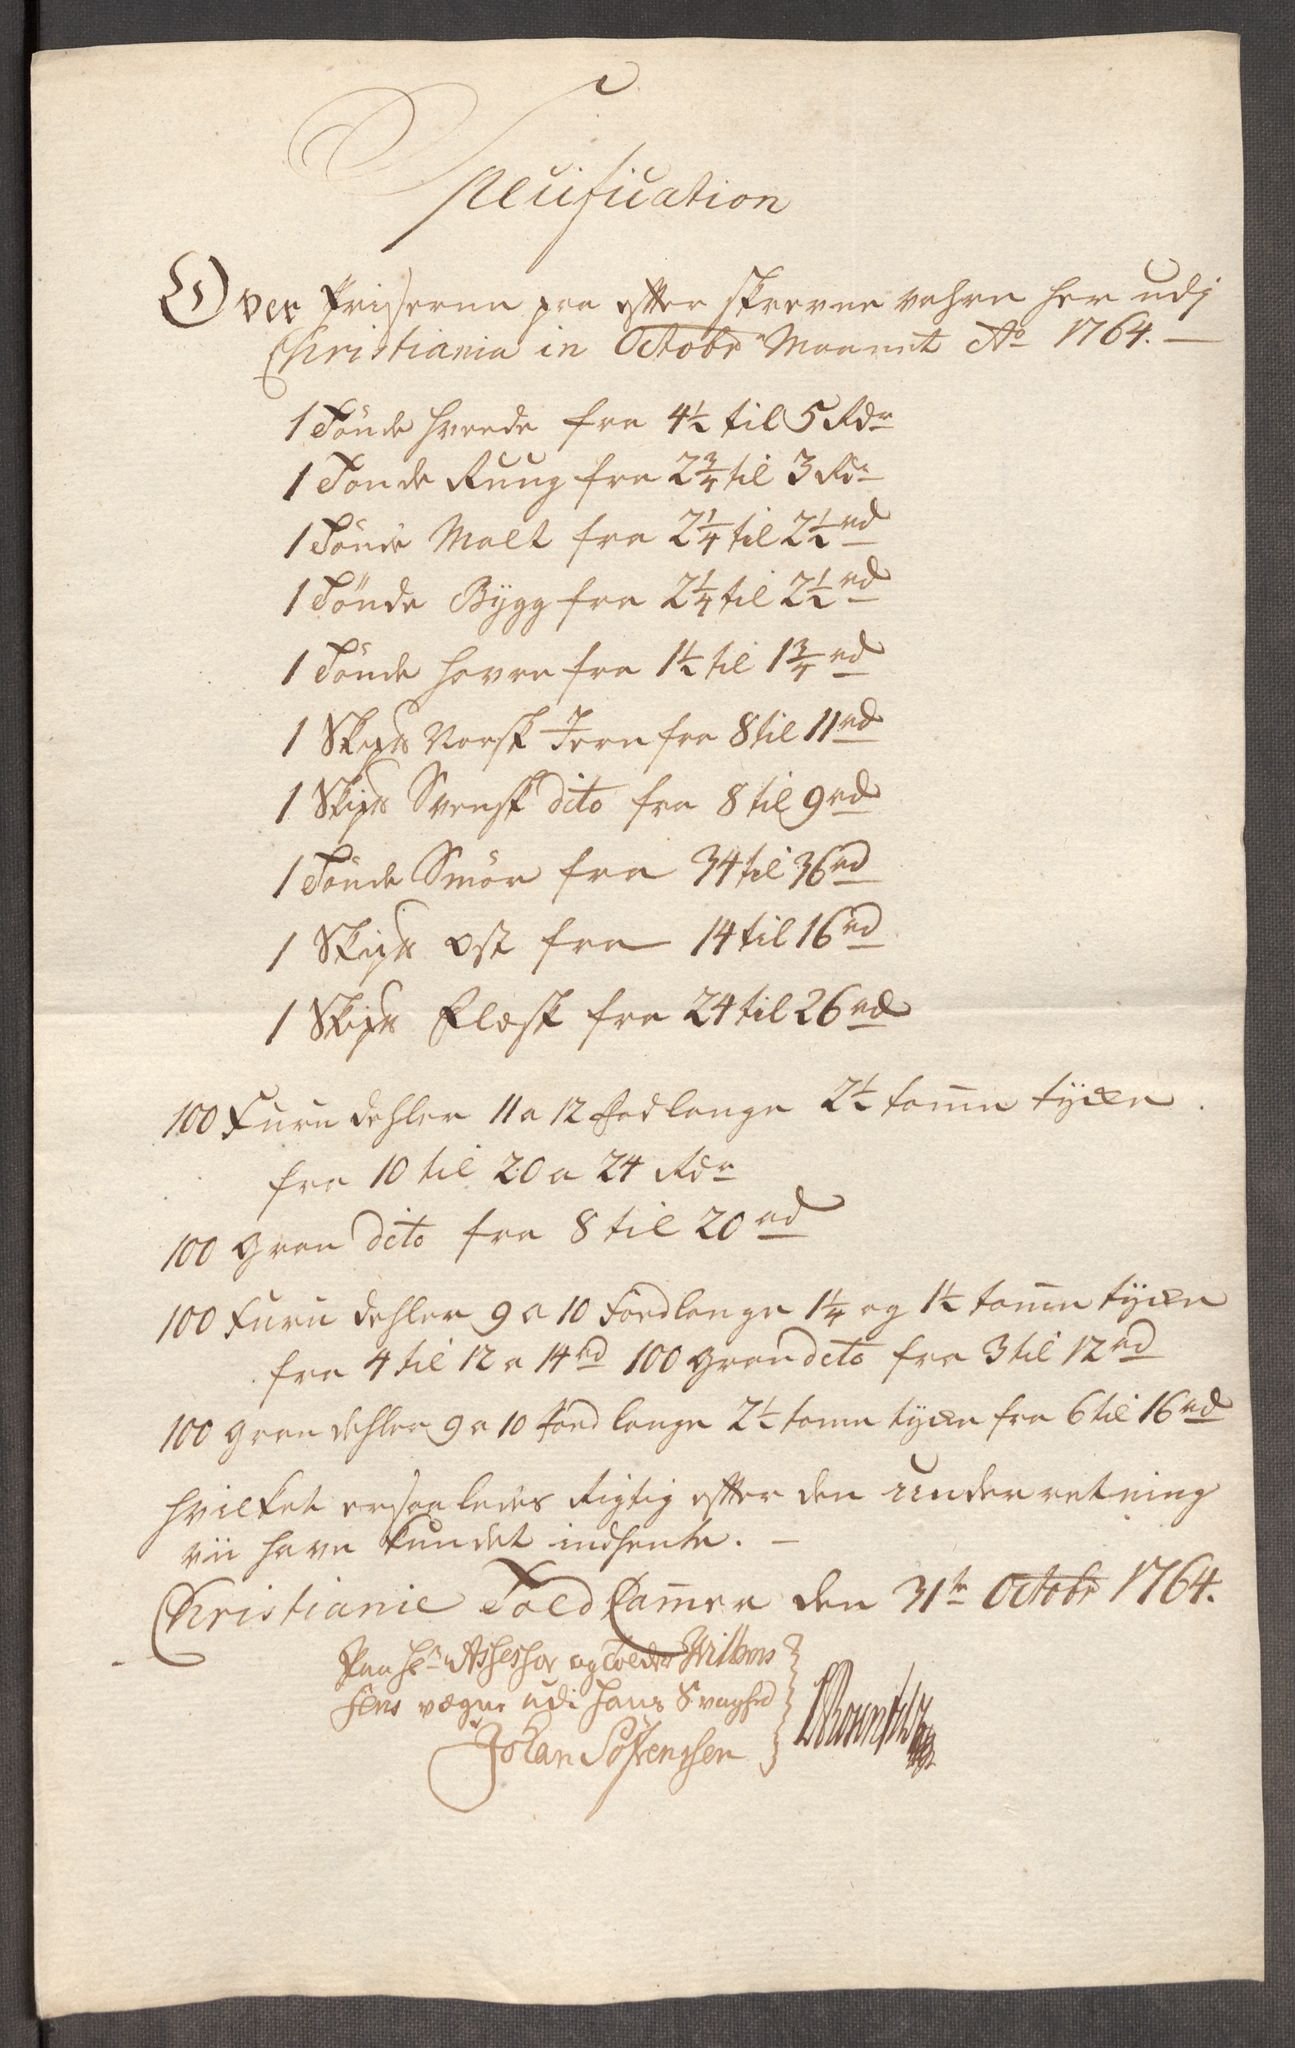 Specification
Over Prisserne paa efter skrevne vahre her udj
Christiania in Octobr Maanet Ao 1764.
1 Tönde hvede fra 4½ til 5 Rdr
1 Tonde Ruug fra 2¾ til 3 Rdr
1 Tönde Malt fra 2¼ til 2½ rd
1 Tönde Bÿgg fra 2¼ til 2½ rd
1 Tönde havre fra 1½ til 1¾ rd
1 Skipd Norsk Jern fra 8 til 11 rd
1 Skipd Svensk dito fra 8 til 9 rd
1 Tönde Smör fra 34 til 36 rd
1 Skipd ost fra 14 til 16 rd
1 Skipd Flesk fra 24 til 26 rd
100 Furu dehler 11 a 12 Fod lange 2½ tomme tÿcke
fra 10 til 20 a 24 Rdr
100 gran dito fra 8 til 20 rd
100 Furu dehler 9 a 10 Foed lange 1¼ og 1½ tomme tÿcke
fra 4 til 12 a 14 rd 100 gran dito fra 3 til 12 rd
100 gran dehler 9 a 10 Foed lange 2½ tome tÿcke fra 6 til 16 rd
hvilket er saaledes Rigtig efter den underretning
vii have kundet indhente.
Christianie Told Camer den 31te Octobr 1764.
Paa Hr Assessor og Tolder Wilhem
sens vegne udi hans Svaghed
Johan Sörensen